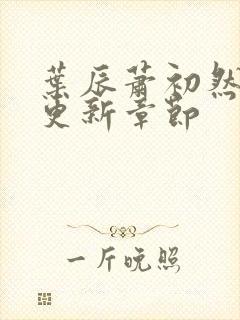 葉辰蕭初然
更新章節
一斤晚照